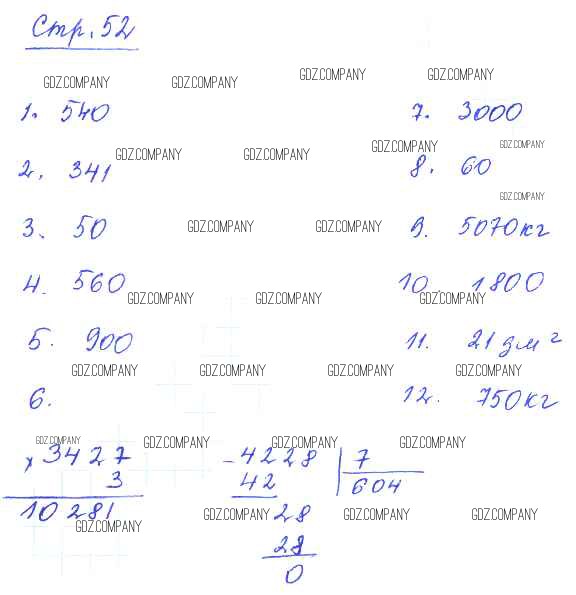 Стр. 52
GDZ.COMPANY GDZ.COMPANY GDZ.COMPANY GDZ.COMPANY
1. 540 7. 3000
GDZ.COMPANY GDZ.COMPANY GDZ.COMPANY GDZ.COMPANY
2. 341 8. 60
GDZ.COMPANY
3. 50 GDZ.COMPANY GDZ.COMPANY 9. 5070 кг
4. 560 10 1800
GDZ.COMPANY GDZ.COMPANY GDZ.COMPANY
5. 900 11. 21 дм²
GDZ.COMPANY GDZ.COMPANY GDZ.COMPANY GDZ.COMPANY
6. 12. 750 кг
GDZ.COMPANY GDZ.COMPANY GDZ.COMPANY GDZ.COMPANY
x 3427 - 4228 | 7
3 42 604
10281 28
GDZ.COMPANY GDZ.COMPANY GDZ.COMPANY GDZ.COMPANY
28
0